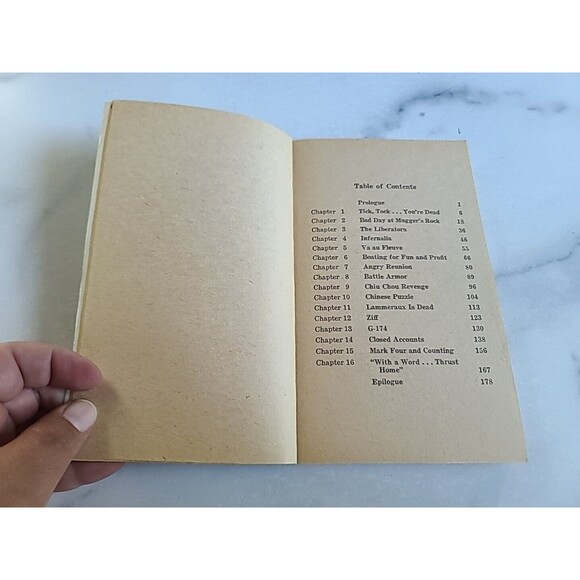 Table of Contents
Prologue 1
Chapter 1 Tick, Tock . . . You're Dead 6
Chapter 2 Bad Day at Mugger's Rock 18
Chapter 3 The Liberators 36
Chapter 4 Infernalia 46
Chapter 5 Va au Fleuve 55
Chapter 6 Boating for Fun and Profit 66
Chapter 7 Angry Reunion 80
Chapter 8 Battle Armor 89
Chapter 9 Chiu Chou Revenge 96
Chapter 10 Chinese Puzzle 104
Chapter 11 Lammeraux Is Dead 113
Chapter 12 Ziff 123
Chapter 13 G-174 130
Chapter 14 Closed Accounts 138
Chapter 15 Mark Four and Counting 156
Chapter 16 "With a Word . . . Thrust
Home" 167
Epilogue 178